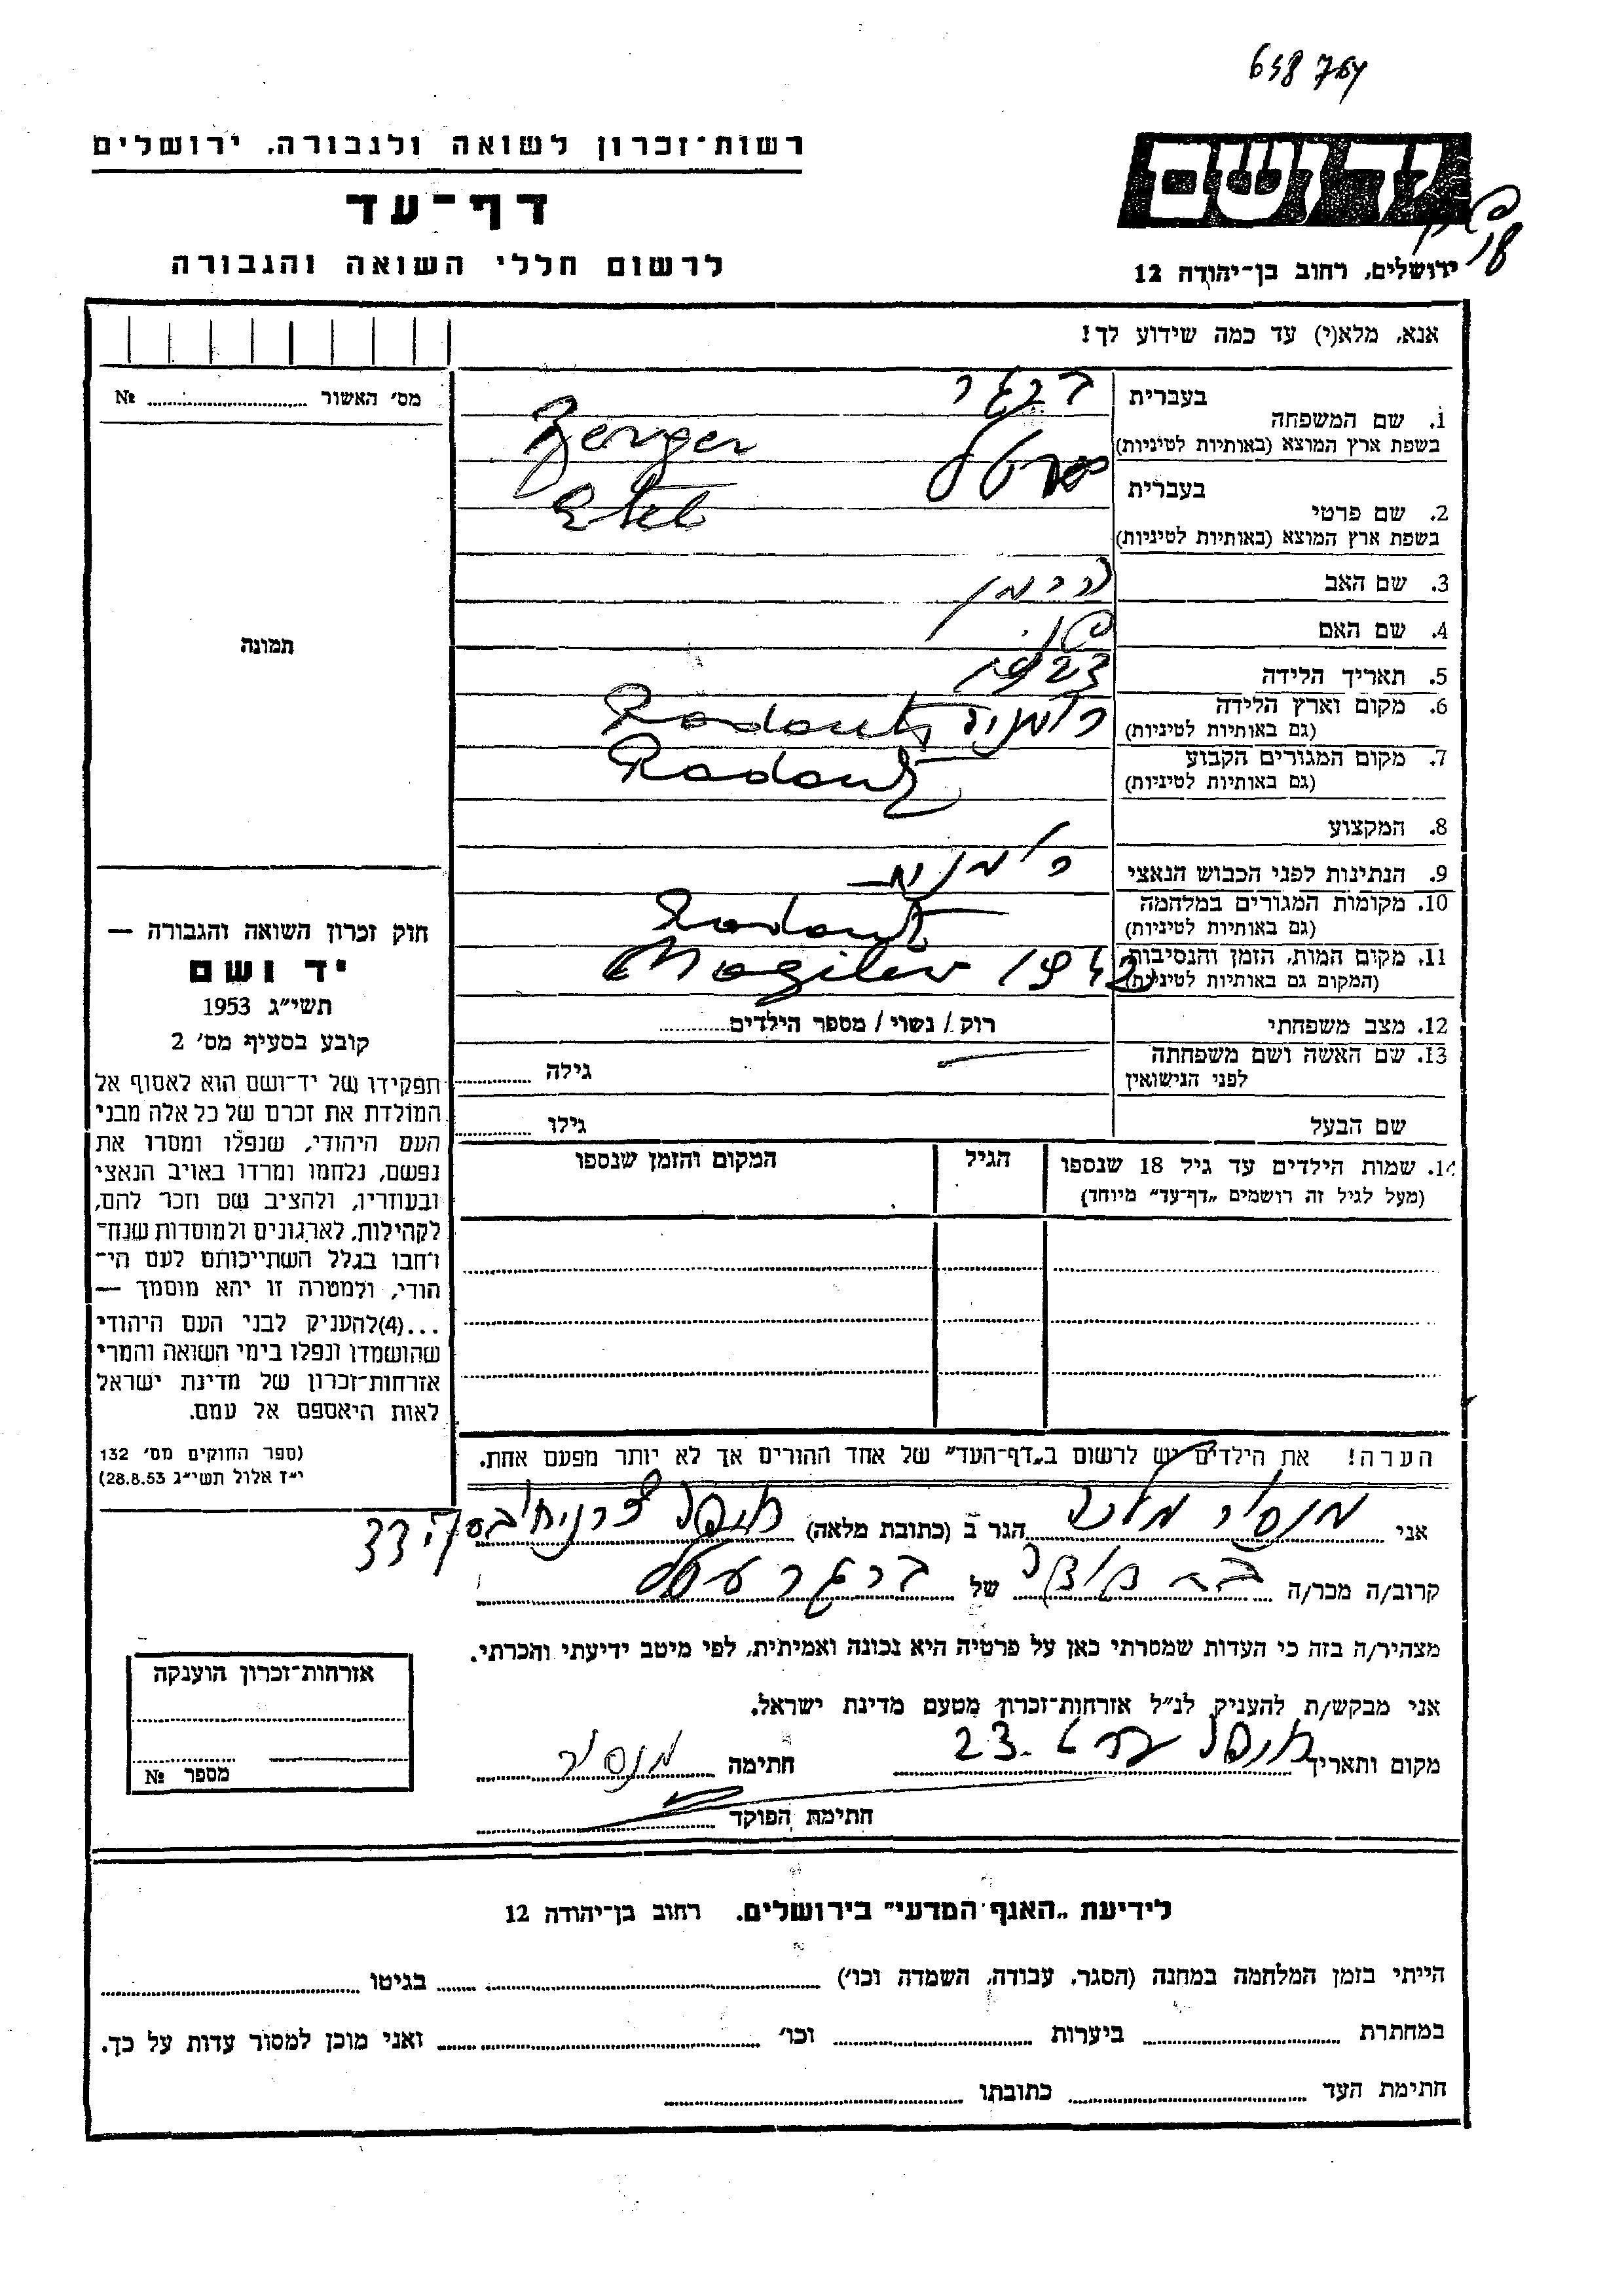 658764
רשות־זכרון לשואה ולגבורה, ירושלים
דף־עד
לרשום חללי השואה והגבורה
יד ושם
ירושלים, רחוב בן־יהודה 12
אנא, מלא(י) עד כמה שידוע לך!
מס׳ האשור № 
1. שם המשפחה
בעברית ברגר
בשפת ארץ המוצא (באותיות לטיניות) Berger
2. שם פרטי
בעברית
בשפת ארץ המוצא (באותיות לטיניות) Etel
3. שם האב
4. שם האם
5. תאריך הלידה 1923
6. מקום וארץ הלידה
(גם באותיות לטיניות) רומניה Radautz
7. מקום המגורים הקבוע
(גם באותיות לטיניות) Radautz
8. המקצוע
9. הנתינות לפני הכבוש הנאצי רומנית
10. מקומות המגורים במלחמה
(גם באותיות לטיניות) Radautz
11. מקום המות, הזמן והנסיבות
(המקום גם באותיות לטיניות) Mogilev 1942
12. מצב משפחתי רוק / נשוי / מספר הילדים
13. שם האשה ושם משפחתה
לפני הנישואין גילה
שם הבעל גילו
14. שמות הילדים עד גיל 18 שנספו
(מעל לגיל זה רושמים „דף־עד״ מיוחד)
הגיל
המקום והזמן שנספו
הערה! את הילדים יש לרשום ב„דף־העד״ של אחד ההורים אך לא יותר מפעם אחת.
תמונה
חוק זכרון השואה והגבורה —
יד ושם
תשי״ג 1953
קובע בסעיף מס׳ 2
תפקידו של יד־ושם הוא לאסוף אל
המולדת את זכרם של כל אלה מבני
העם היהודי, שנפלו ומסרו את
נפשם, נלחמו ומרדו באויב הנאצי
ובעוזריו, ולהציב שם וזכר להם,
לקהילות, לארגונים ולמוסדות שנח־
רחבו בגלל השתייכותם לעם הי־
הודי, ולמטרה זו יהא מוסמך —
...(4)להעניק לבני העם היהודי
שהושמדו ונפלו בימי השואה והמרי
אזרחות־זכרון של מדינת ישראל
לאות היאספם אל עמם.
(ספר החוקים מס׳ 132
י״ז אלול תשי״ג 28.8.53)
אני הגר ב (כתובת מלאה) 33
קרוב/ה מכר/ה של ברגר עטל
מצהיר/ה בזה כי העדות שמסרתי כאן על פרטיה היא נכונה ואמיתית, לפי מיטב ידיעתי והכרתי.
אני מבקש/ת להעניק לנ״ל אזרחות־זכרון מטעם מדינת ישראל.
מקום ותאריך חתימה
חתימת הפוקד
אזרחות־זכרון הוענקה
מספר №
לידיעת „האגף המדעי״ בירושלים, רחוב בן־יהודה 12
הייתי בזמן המלחמה במחנה (הסגר, עבודה, השמדה וכו׳) בגיטו
במחתרת ביערות וכו׳ ואני מוכן למסור עדות על כך.
חתימת העד כתובתו